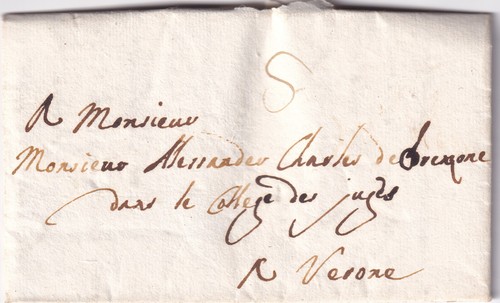 8
A Monsieur
Monsieur Alessander Charles de
dans le College des juges
A Verone